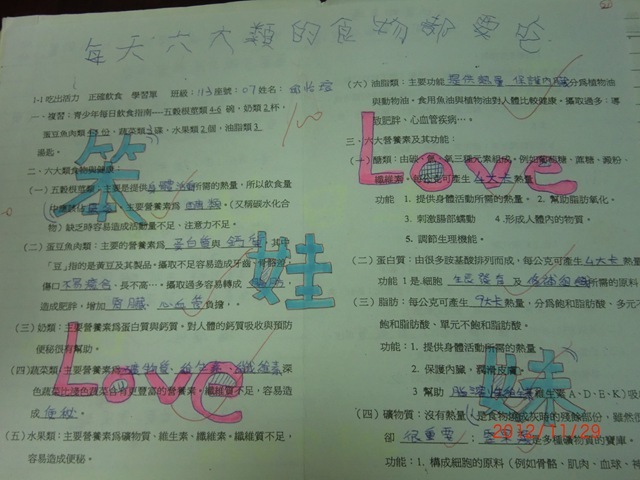 每天六大類的食物都要吃
1-1 吃出活力 正國飲食 學習單 班級:113 座號:07 姓名:
一、複習:青少年每日飲食指南----五穀根莖類4-6 碗,奶類2杯,
蛋豆魚肉類4-5份,蔬菜類3碟,水果類2個,油脂類3
湯匙。
100
二、六大類食物與健康:
(一)五穀根莖類:主要是提供身體活動所需的熱量,所以飲食量
主要營養素為醣類。(又稱碳水化合
物)缺乏時容易造成活動量不足、注意力不足。
(二)蛋豆魚肉類:主要的營養素為蛋白質與鈣質,其中
「豆」指的是黃豆及其製品。攝取不足容易造成牙齒、骨骼
傷口不易癒合、長不高…。攝取過多容易轉成
造成肥胖,增加腎臟、心血管負擔,。
(三)奶類:主要營養素爲蛋白質與鈣質。對人體的鈣質吸收與預防
便秘很有幫助。
(四)蔬菜類:主要營養素爲礦物質、維生素、纖維素深
色蔬菜比淺色蔬菜含有更豐富的營養素。纖維質不足,容易造
成便秘。
(五)水果類:主要營養素爲礦物質、維生素、纖維素。纖維質不足,
容易造成便秘。
笨
娃
Love
(六)油脂類:主要功能提供熱量 保護內臟分爲植物油
與動物油。食用魚油與植物油對人體比較健康。攝取過多:導
致肥胖、心血管疾病…。
三、六大營養素及其功能:
(一)醣類:由碳、氫、氧三種元素組成。例如葡萄糖、蔗糖、澱粉、
纖維素。每公克可產生4大卡熱量
功能 1. 提供身體活動所需的熱量。 2. 幫助脂肪氧化。
3. 刺激腸部蠕動 4.形成人體內的物質。
5. 調節生理機能。
(二)蛋白質:由很多胺基酸排列而成,每公克可產生4大卡熱量
功能 1 是.細胞 生長發育及修補組織所需的原料
(三)脂肪:每公克可產生9大卡熱量,分爲飽和脂肪酸、多元
飽和脂肪酸、單元不飽和脂肪酸。
功能:1. 提供身體活動所需的熱量。
2. 保護內臟,潤滑皮膚。
3 幫助 維生素A、D、E、K)吸
(四)礦物質:沒有熱量,是食物燒成灰時的殘餘部份,雖然
卻很重要;是多種礦物質的寶庫。
功能:1. 構成細胞的原料(例如骨骼、肌肉、血球、神
Love
妹
2012/11/29